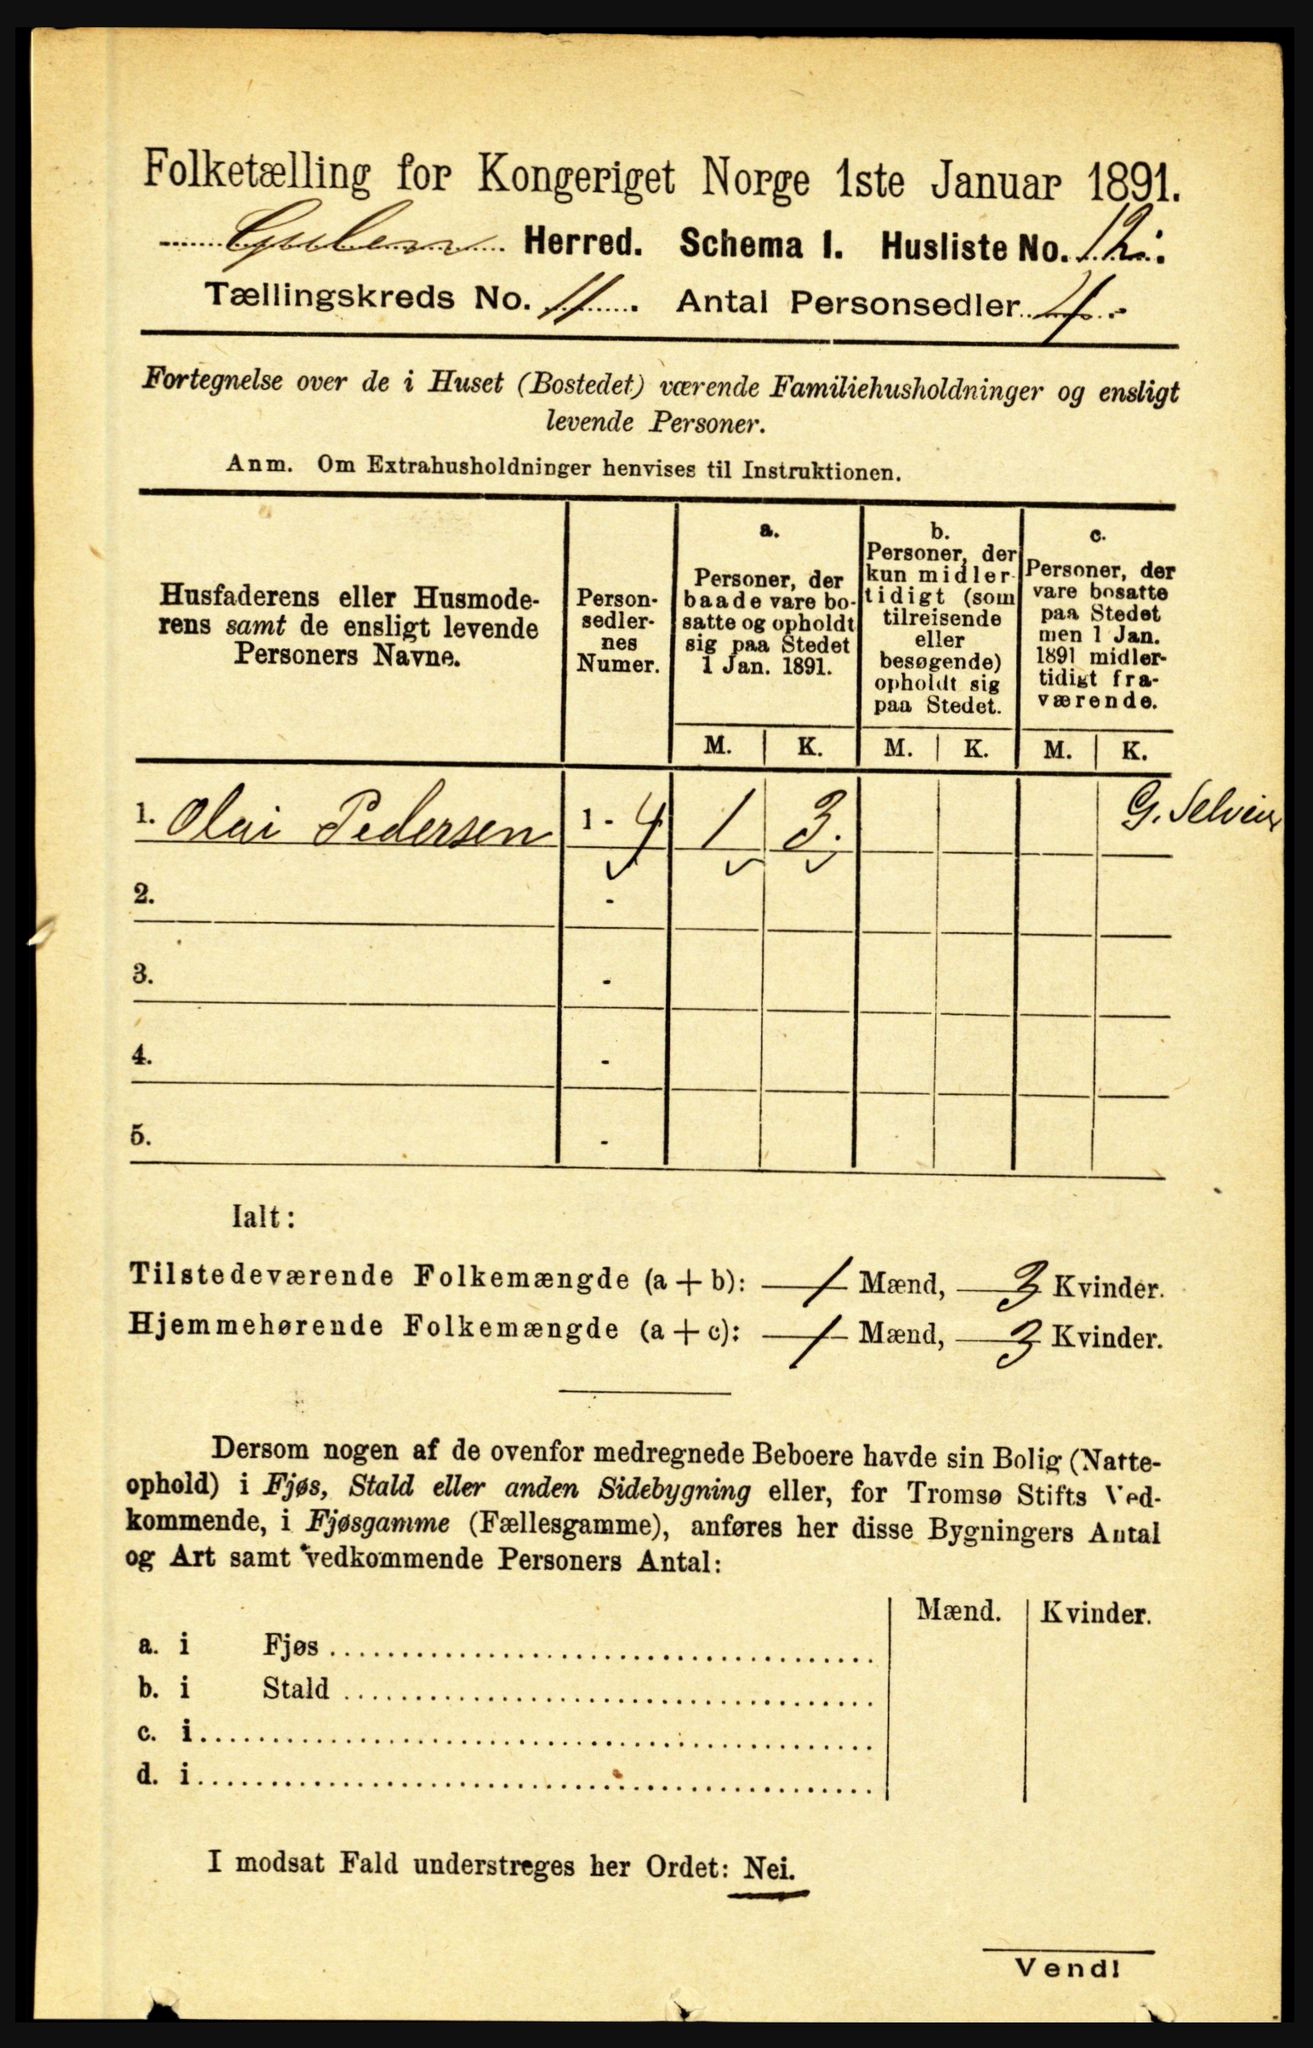 Folketælling for Kongeriget Norge 1ste Januar 1891.
Gulen Herred. Schema I. Husliste No. 12.
Tællingskreds No. 11. Antal Personsedler 4.
Fortegnelse over de i Huset (Bostedet) værende Familiehusholdninger og ensligt
levende Personer.
Anm. Om Extrahusholdninger henvises til Instruktionen.
Husfaderens eller Husmode-
rens samt de ensligt levende
Personers Navne.
Person-
sedler-
nes
Numer.
a.
Personer, der
baade vare bo-
satte og opholdt
sig paa Stedet
1 Jan. 1891.
b.
Personer, der
kun midler-
tidigt (som
tilreisende
eller
besøgende)
opholdt sig
paa Stedet.
c.
Personer, der
vare bosatte
paa Stedet
men 1 Jan.
1891 midler-
tidigt fra-
værende.
M. K. M. K. M. K.
1. Olai Pedersen 1 - 4 1 3. G.
2. -
3. -
4. -
5. -
Ialt:
Tilstedeværende Folkemængde (a + b): 1 Mænd, 3 Kvinder.
Hjemmehørende Folkemængde (a + c): 1 Mænd, 3 Kvinder.
Dersom nogen af de ovenfor medregnede Beboere havde sin Bolig (Natte-
ophold) i Fjøs, Stald eller anden Sidebygning eller, for Tromsø Stifts Ved-
kommende, i Fjøsgamme (Fællesgamme), anføres her disse Bygningers Antal
og Art samt vedkommende Personers Antal:
Mænd. Kvinder.
a. i Fjøs
b. i Stald
c. i
d. i
I modsat Fald understreges her Ordet: Nei.
Vend!